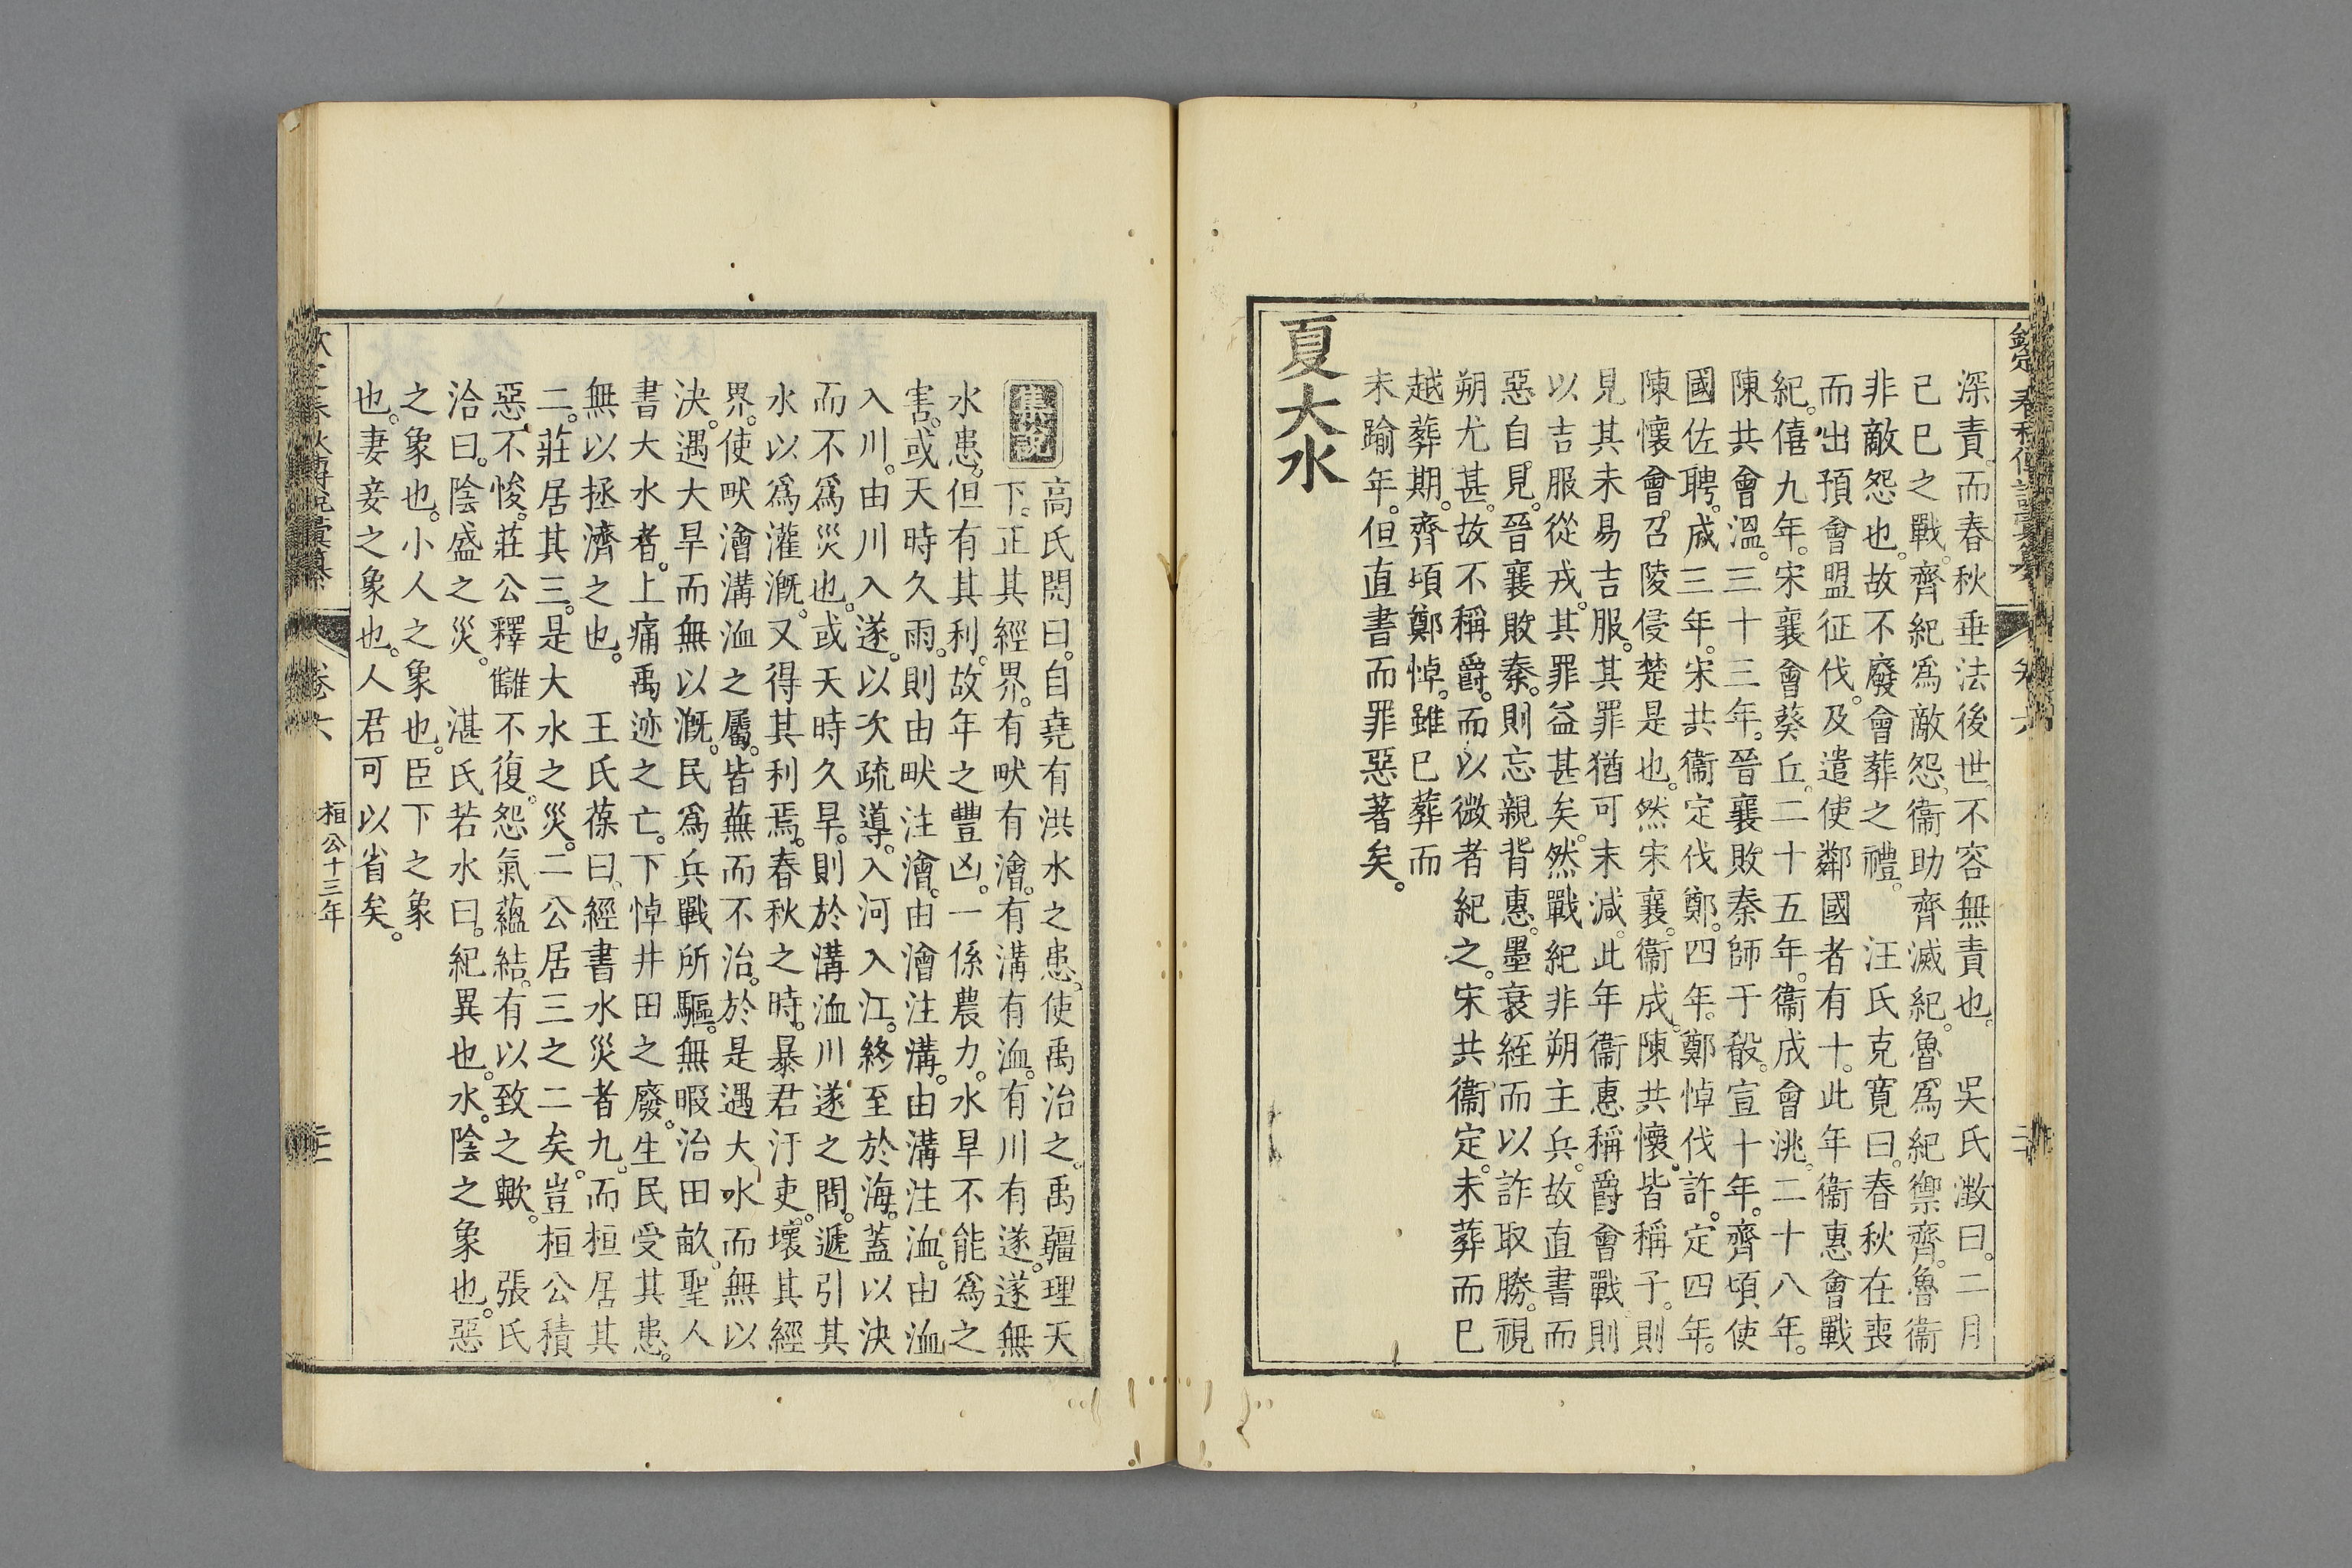 欽定春秋傳說彙纂
卷六
深責。而春秋垂法後世。不容無責也。　吳氏澂曰。二月
己巳之戰。齊紀爲敵怨。衞助齊滅紀。魯爲紀禦齊。魯衞
非敵怨也。故不廢會葬之禮。　汪氏克寬曰。春秋在喪
而出預會盟征伐。及遣使鄰國者有十。此年衞惠會戰
紀。僖九年。宋襄會葵丘。二十五年。衞成會洮。二十八年。
陳共會溫。三十三年。晉襄敗秦師于殽。宣十年。齊頃使
國佐聘。成三年。宋共衞定伐鄭。四年。鄭悼伐許。定四年。
陳懷會。召陵侵楚是也。然宋襄。衞成。陳共懷。皆稱子。則
見其未易吉服。其罪猶可末減。此年衞惠稱爵會戰則
以吉服從戎。其罪益甚矣。然戰紀非朔主兵。故直書而
惡自見。晉襄敗秦。則忘親背惠。墨衰絰而以詐取勝。視
朔尤甚。故不稱爵。而以微者紀之。宋共衞定。未葬而已
越葬期。齊頃鄭悼。雖已葬而
未踰年。但直書而罪惡著矣。
夏大水
集說
高氏閌曰。自堯有洪水之患。使禹治之。禹疆理天
下。正其經界。有畎有澮。有溝有洫。有川有遂。遂無
水患。但有其利。故年之豐凶。一係農力。水旱不能爲之
害。或天時久雨。則由畎注澮。由澮注溝。由溝注洫。由洫
入川。由川入遂。以次疏導。入河入江。終至於海。蓋以決
而不爲災也。或天時久旱。則於溝洫川遂之間。遞引其
水以爲灌漑。又得其利焉。春秋之時。暴君汙吏。壞其經
界。使畎澮溝洫之屬。皆蕪而不治。於是遇大水而無以
決。遇大旱而無以漑。民爲兵戰所驅。無暇治田畝。聖人
書大水者。上痛禹迹之亡。下悼井田之廢。生民受其患。
無以拯濟之也。　王氏葆曰。經書水災者九。而桓居其
二。莊居其三。是大水之災。二公居三之二矣。豈桓公積
惡不悛。莊公釋讎不復。怨氣蘊結。有以致之歟。　張氏
洽曰。陰盛之災。　湛氏若水曰。紀異也。水。陰之象也。惡
之象也。小人之象也。臣下之象
也。妻妾之象也。人君可以省矣。
卷六
桓公十三年